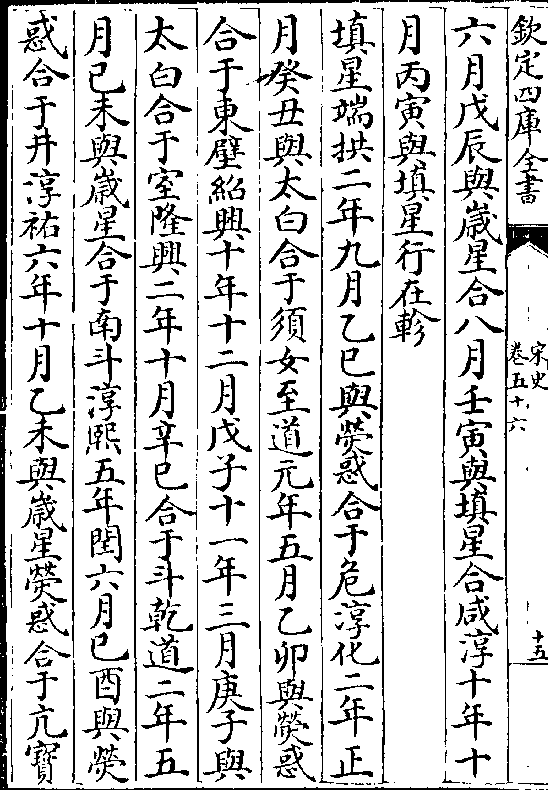 欽定四庫全書
宋史
卷五十六
十五
六月戊辰與嵗星合八月壬寅與填星合咸淳十年十
月丙寅與填星行在軫
填星端拱二年九月乙巳與熒惑合于危淳化二年正
月癸丑與太白合于須女至道元年五月乙卯與熒惑
合于東壁紹興十年十二月戊子十一年三月庚子與
太白合于室隆興二年十月辛巳合于斗乾道二年五
月己未與嵗星合于南斗淳熙五年閏六月己酉與熒
惑合于井淳祐六年十月乙未與嵗星熒惑合于亢寳